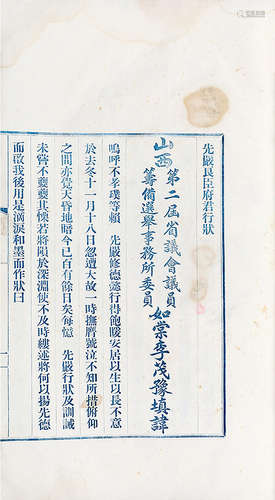 先嚴良臣府君行狀
山西第二屆省議會議員
籌備選舉事務所委員
如棠李茂豫填諱
嗚呼不孝璞等賴　先嚴修德懿行得飽暖安居以生以長不意
於去冬十一月十八日忽遭大故一時撫膺號泣不知所措俯仰
之間亦覺天昏地暗今已百有餘日矣每憶　先嚴行狀及訓誡
未嘗不夔夔其懷若將隕於深淵使不及時縷述將何以揚先德
而啟我後用是濱淚和墨而作狀曰
一